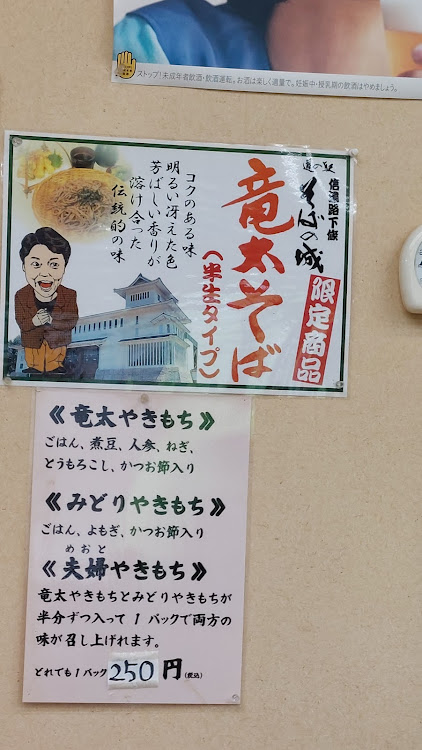 ストップ!未成年者飲酒・飲酒運転。お酒は楽しく適量で。妊娠中・授乳期の飲酒はやめましょう。
道の駅
信濃路下條
そばの城
限定商品
竜太そば
(半生タイプ)
コクのある味
明るい冴えた色
芳ばしい香りが
溶け合った
伝統的の味
《竜太やきもち》
ごはん、煮豆、人参、ねぎ、
とうもろこし、かつお節入り
《みどりやきもち》
ごはん、よもぎ、かつお節入り
めおと
《夫婦やきもち》
竜太やきもちとみどりやきもちが
半分ずつ入って1パックで両方の
味が召し上げれます。
どれでも1パック250円(税込)